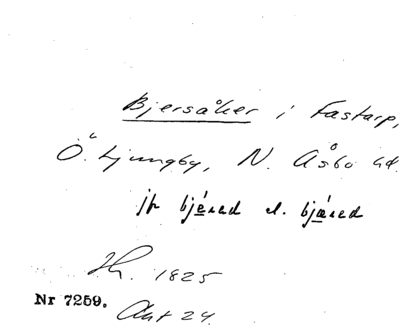 Bjersåker i Fastarp,
Ö. Ljungby, N. Åsbo hd.
jfr bjéred el. bjæred
Jh. 1825
Nr 7259. Akt 24